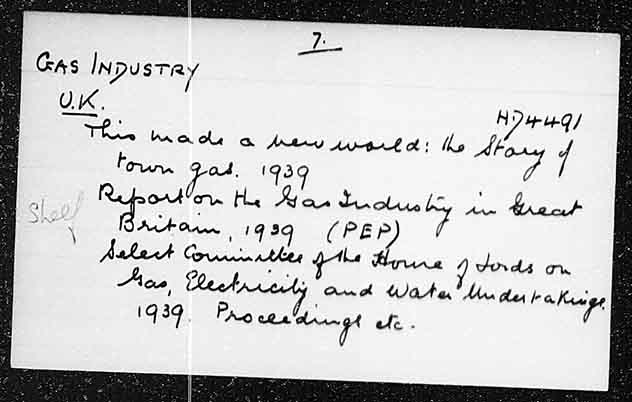 7.
GAS INDUSTRY
U.K.
HD4491
This made a new world: the Story of
town gas. 1939
Report on the Gas Industry in Great
Shelf
Britain, 1939 (PEP)
Select Committee of the House of Lords on
Gas, Electricity and Water Undertakings.
1939. Proceedings etc.